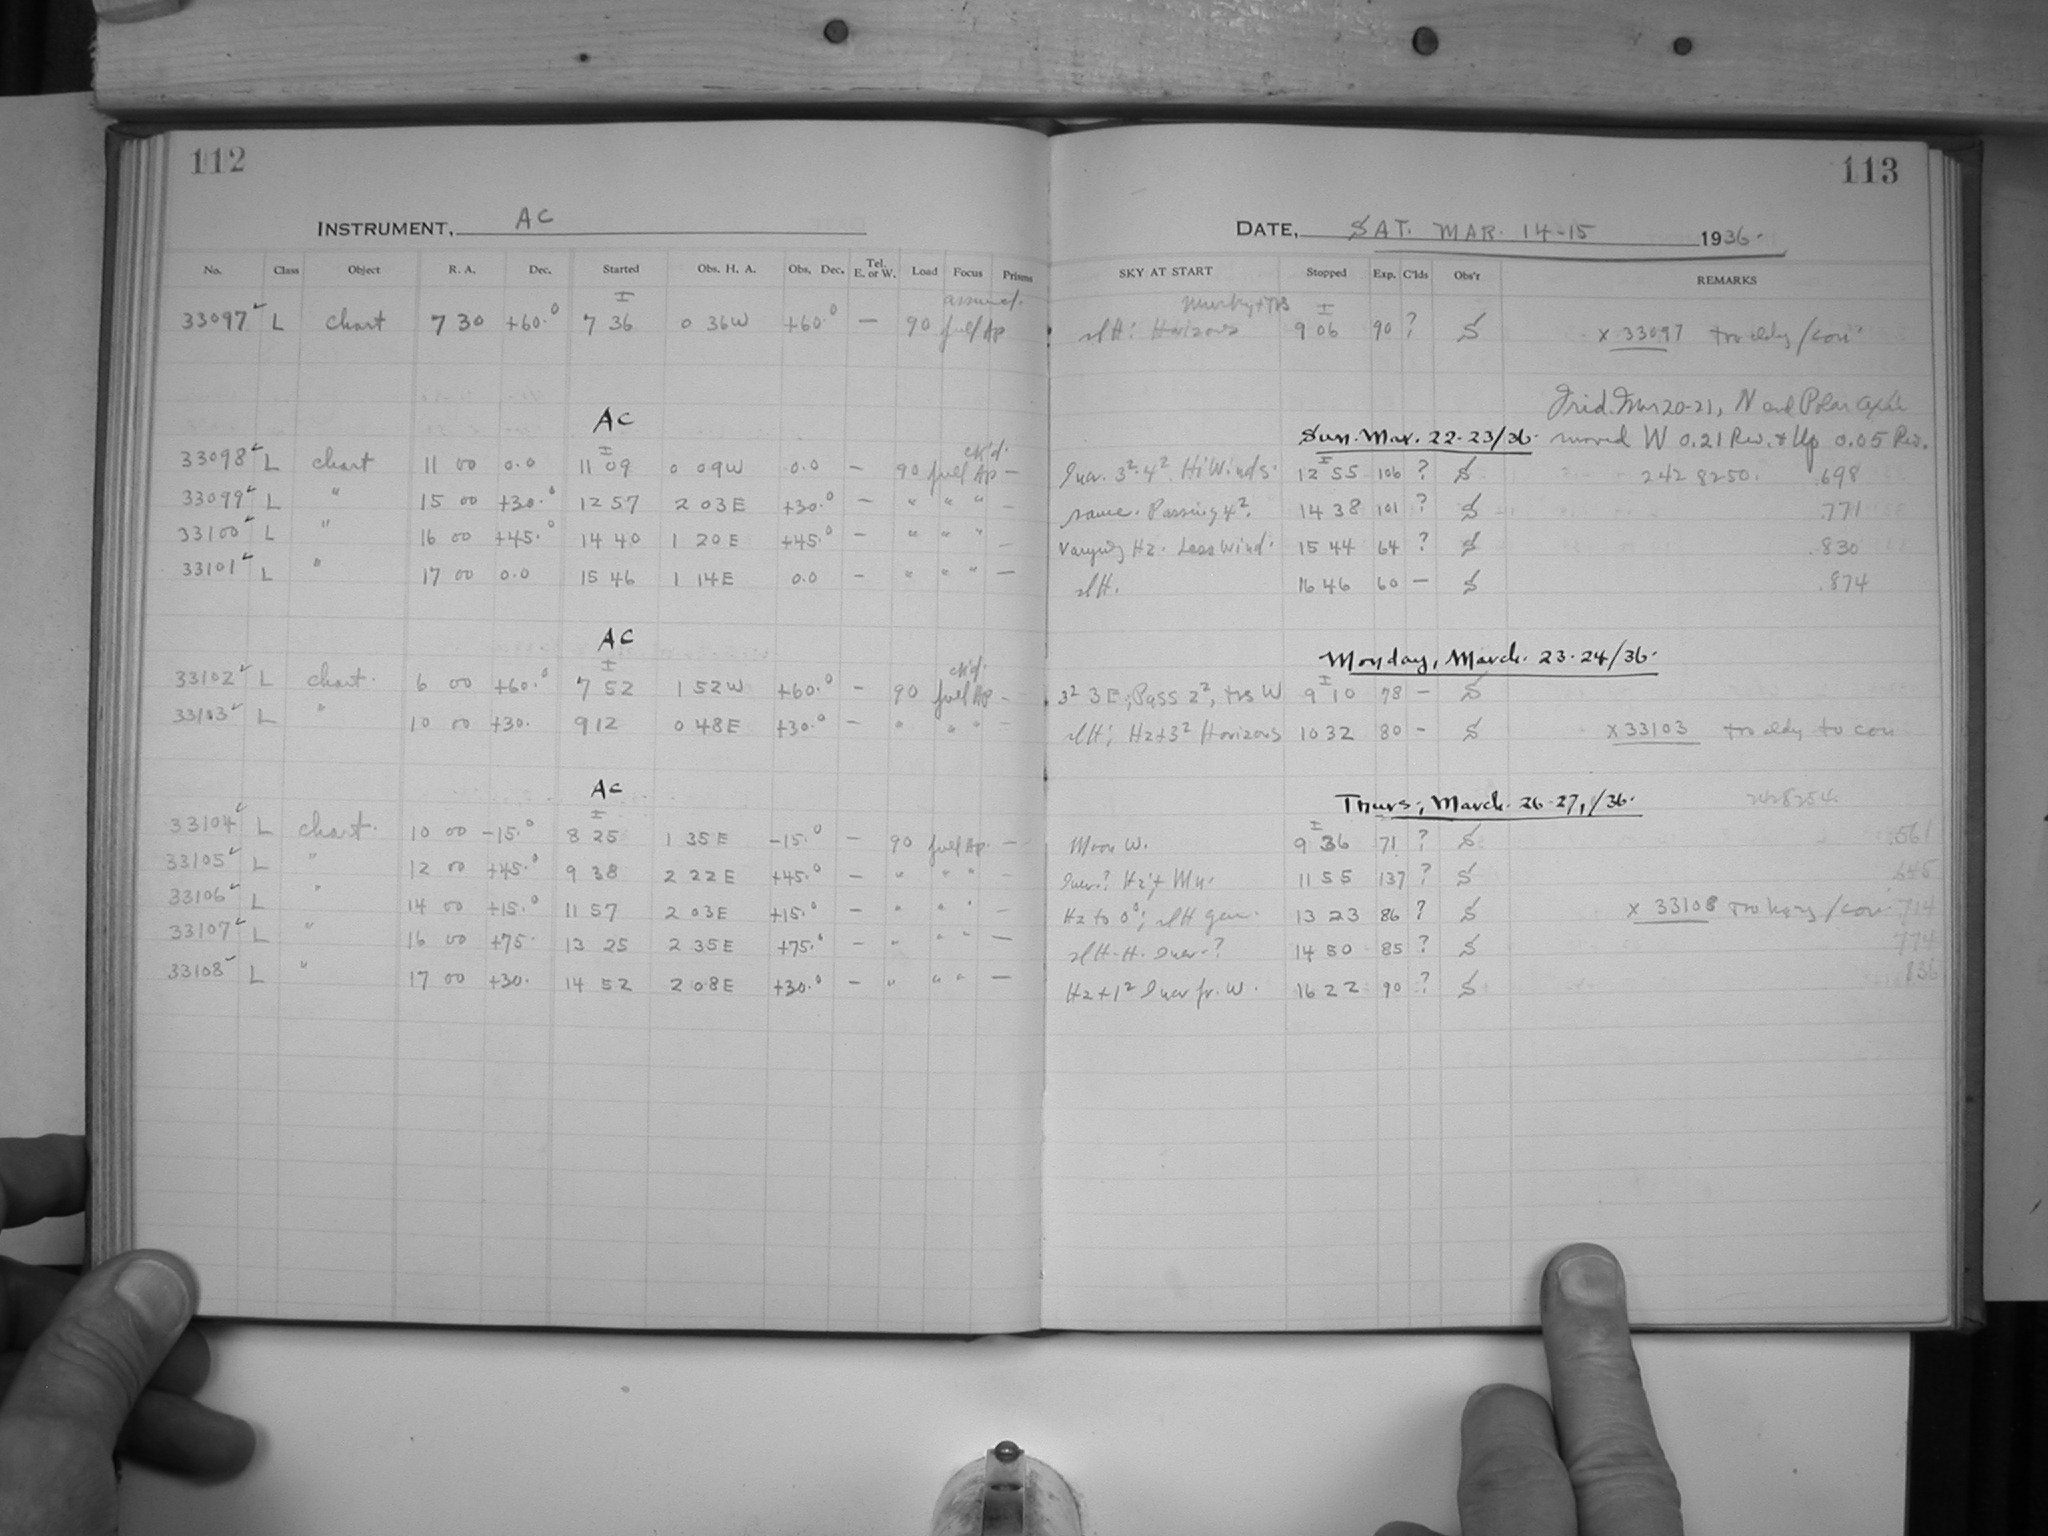 112
INSTRUMENT, AC
No. Class Object R. A. Dec. Started Obs. H. A. Obs. Dec. Tel. E. or W. Load Focus Prisms
I assumed.
33097 ✓ L chart 7 30 +60.° 7 36 0 36W +60.° — 90 full Ap
AC
I ck'd.
33098 ✓ L chart 11 00 0.0 11 09 0 09W 0.0 — 90 full Ap —
33099 ✓ L " 15 00 +30.° 12 57 2 03E +30.° — " " " —
33100 ✓ L " 16 00 +45.° 14 40 1 20E +45.° — " " " —
33101 ✓ L " 17 00 0.0 15 46 1 14E 0.0 — " " " —
AC
I ck'd.
33102 ✓ L chart. 6 00 +60.° 7 52 1 52W +60.° — 90 full Ap —
33103 ✓ L " 10 00 +30. 9 12 0 48E +30.° — " " " —
AC
I
33104 ✓ L chart. 10 00 -15.° 8 25 1 35E -15.° — 90 full Ap. —
33105 ✓ L " 12 00 +45.° 9 38 2 22E +45.° — " " " —
33106 ✓ L " 14 00 +15.° 11 57 2 03E +15.° — " " " —
33107 ✓ L " 16 00 +75. 13 25 2 35E +75.° — " " " —
33108 ✓ L " 17 00 +30. 14 52 2 08E +30.° — " " " —
113
DATE, SAT. MAR. 14-15 1936.
SKY AT START Stopped Exp. C'lds Obs'r REMARKS
I
Horizons 9 06 90 ? S x 33097
Frid. Mar 20-21, N end Polar axis
Sun. Mar. 22-23/36. moved W 0.21 Rev. & Up 0.05 Rev.
3². 4². Hi Winds. 12 55 106 ? S 242 8250. .698
same. Passing 4². 14 38 101 ? S .771
Varying Hz. Less Wind. 15 44 64 ? S .830
slH. 16 46 60 — S .874
Monday, March. 23-24/36.
I
3² 3E; Pass 2², W 9 10 78 — S
slH; Hz+3² Horizons 10 32 80 — S x 33103
Thurs; March. 26-27,/36. 2428254.
I
Moon W. 9 36 71 ? S .561
11 55 137 ? S .645
Hz to 0°; slH gen. 13 23 86 ? S x 33108 714
14 50 85 ? S 774
Hz+1² fr. W. 16 22 90 ? S 836